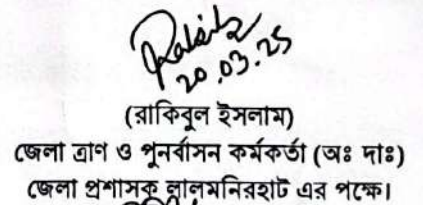 20.03.25
(রাকিবুল ইসলাম)
জেলা ত্রাণ ও পুনর্বাসন কর্মকর্তা (অঃ দাঃ)
জেলা প্রশাসক লালমনিরহাট এর পক্ষে।